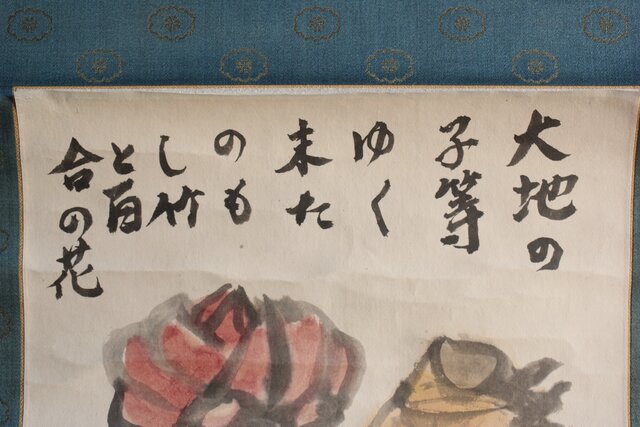 大地の
子等
ゆく
末た
のも
し竹
と百
合の花